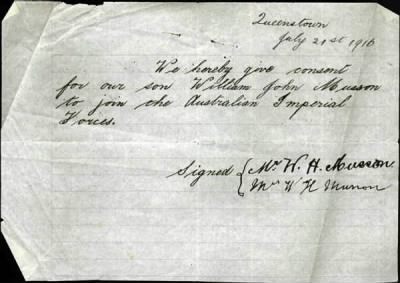 Queenstown
July 21st 1916
We hereby give consent
for our son William John Musson
to join the Australian Imperial
Forces.
Signed { Mr W. H. Musson
Mrs W H Musson